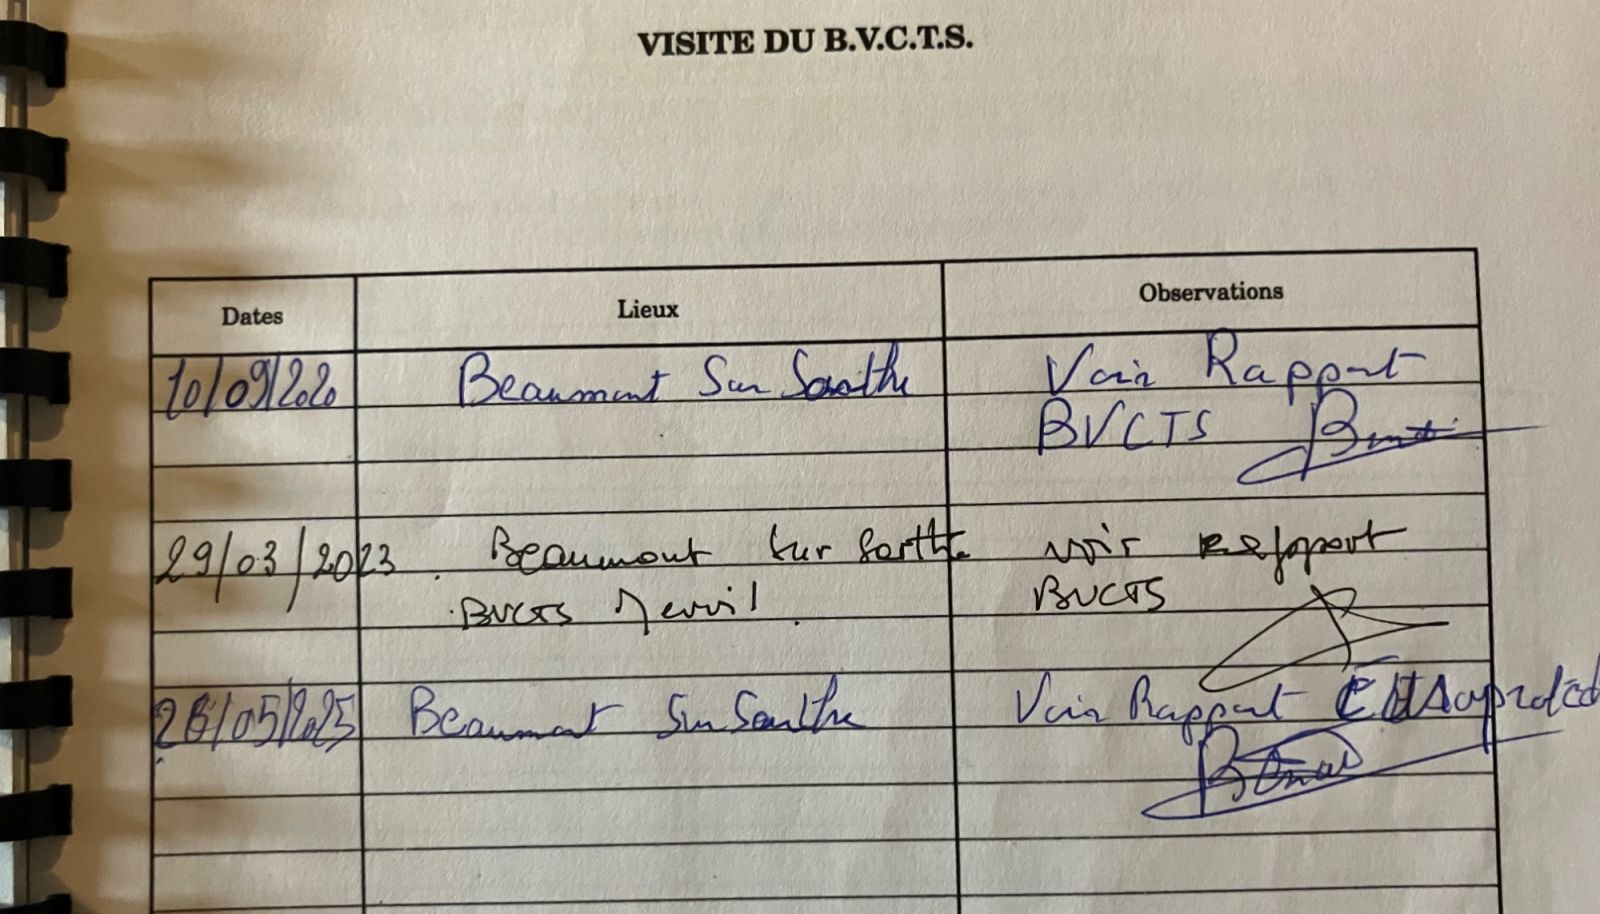 VISITE DU B.V.C.T.S.
Dates Lieux Observations
10/09/2020 Beaumont Sur Sarthe Voir Rapport
BVCTS
29/03/2023 Beaumont sur Sarthe voir Rapport
BVCTS BVCTS
26/05/2025 Beaumont Sur Sarthe Voir Rapport